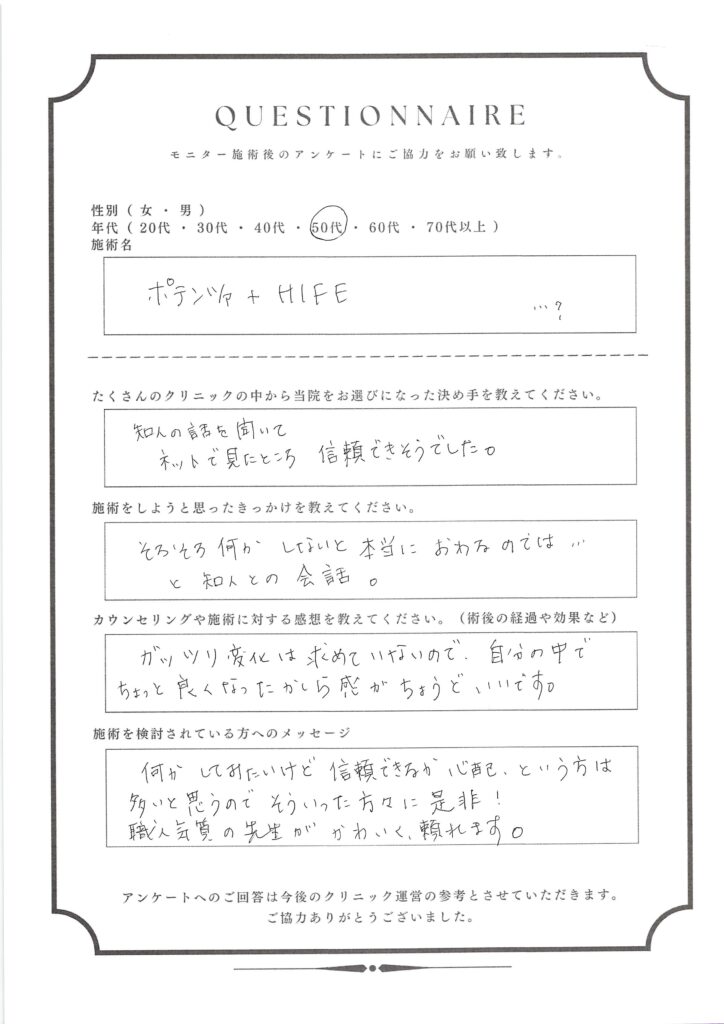 QUESTIONNAIRE
モニター施術後のアンケートにご協力をお願い致します。
性別 ( 女 ・ 男 )
年代 ( 20代 ・ 30代 ・ 40代 ・ 50代 ・ 60代 ・ 70代以上 )
施術名
ポテンツァ + HIFE
…?
たくさんのクリニックの中から当院をお選びになった決め手を教えてください。
知人の話を聞いて
ネットで見たところ 信頼できそうでした。
施術をしようと思ったきっかけを教えてください。
そろそろ何か しないと 本当に おわるのでは…
と 知人との 会話 。
カウンセリングや施術に対する感想を教えてください。（術後の経過や効果など）
ガッツリ変化は求めていないので、自分の中で
ちょっと良くなったかしら感がちょうどいいです。
施術を検討されている方へのメッセージ
何か してみたいけど 信頼できるか 心配、という方は
多いと思うので そういった方々に是非！
職人気質の先生が かわいく、頼れます。
アンケートへのご回答は今後のクリニック運営の参考とさせていただきます。
ご協力ありがとうございました。